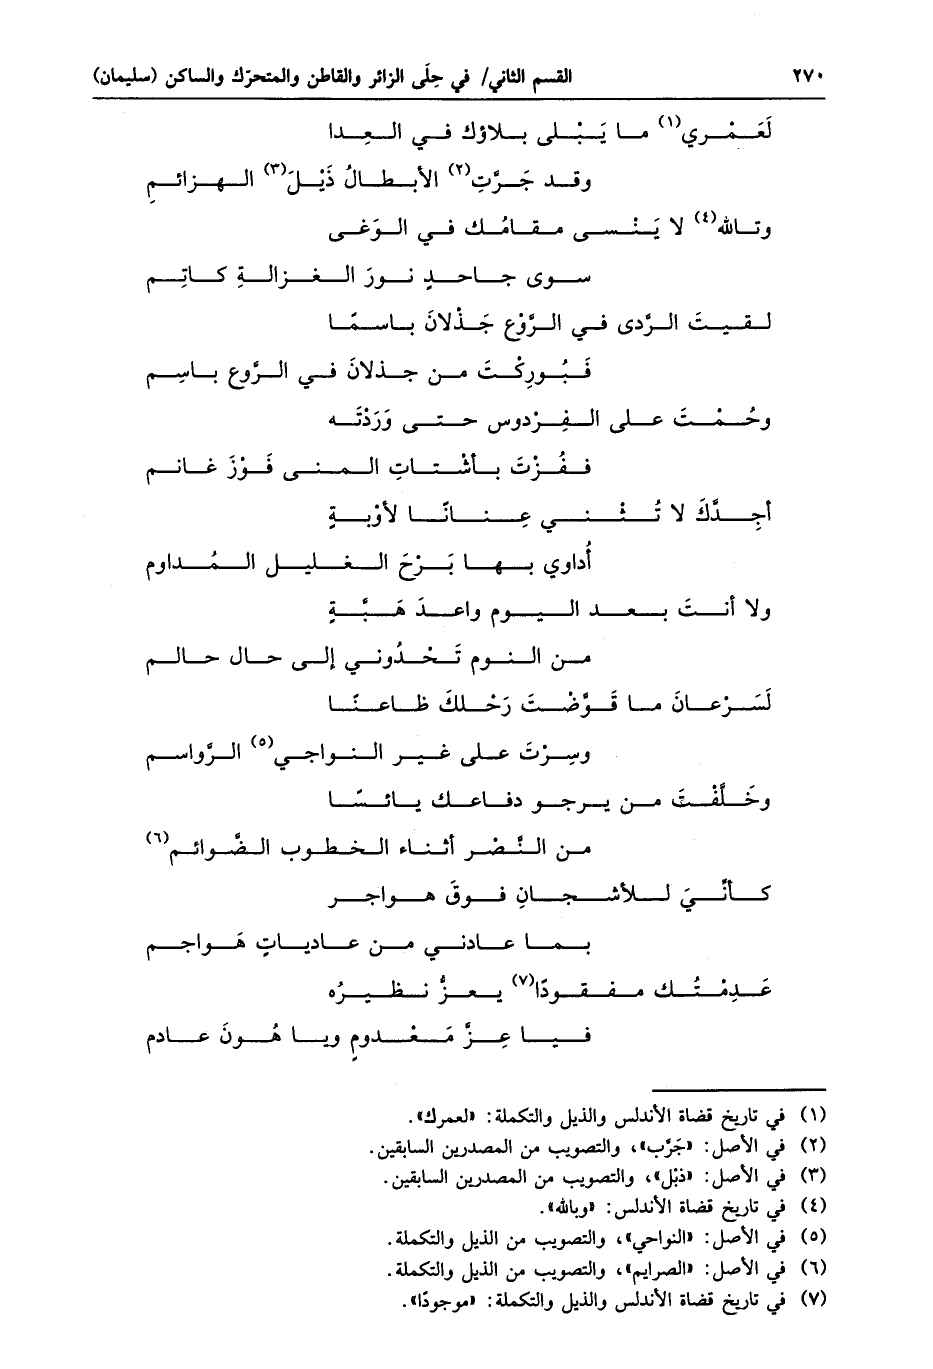 ٢٧٠ القسم الثاني/ في حِلَى الزائر والقاطن والمتحرّك والساكن (سليمان)
لَعَمْري(١) ما يَبْلى بلاؤك في العِدا
وقد جَرَّتِ(٢) الأبطالُ ذَيْلَ(٣) الهزائمِ
وتالله(٤) لا يَنْسى مقامُك في الوَغى
سوى جاحدٍ نورَ الغزالةِ كاتِمِ
لقيتَ الرَّدى في الرَّوْع جَذْلانَ باسمًا
فَبُورِكْتَ من جذلانَ في الرَّوع باسِم
وحُمْتَ على الفِرْدوس حتى وَرَدْتَه
ففُزْتَ بأشْتاتِ المنى فَوْزَ غانم
أجِدَّكَ لا تُثْني عِنانًا لأوْبةٍ
أُداوي بها بَرْحَ الغليل المُداوم
ولا أنتَ بعد اليوم واعدَ هَبَّةٍ
من النوم تَحْدُوني إلى حال حالم
لَسَرْعانَ ما قَوَّضْتَ رَحْلكَ ظاعنًا
وسِرْتَ على غير النواجي(٥) الرَّواسم
وخَلَّفْتَ من يرجو دفاعك يائسًا
من النَّصْر أثناء الخطوب الضَّوائم(٦)
كأنّيَ للأشجانِ فوقَ هواجر
بما عادني من عادياتٍ هَواجم
عَدِمْتُك مفقودًا(٧) يعزُّ نظيرُه
فيا عِزَّ مَعْدومٍ ويا هُونَ عادم
(١) في تاريخ قضاة الأندلس والذيل والتكملة: «لعمرك».
(٢) في الأصل: «جَرَّب»، والتصويب من المصدرين السابقين.
(٣) في الأصل: «ذبْل»، والتصويب من المصدرين السابقين.
(٤) في تاريخ قضاة الأندلس: «وبالله».
(٥) في الأصل: «النواحي»، والتصويب من الذيل والتكملة.
(٦) في الأصل: «الصرايم»، والتصويب من الذيل والتكملة.
(٧) في تاريخ قضاة الأندلس والذيل والتكملة: «موجودًا».